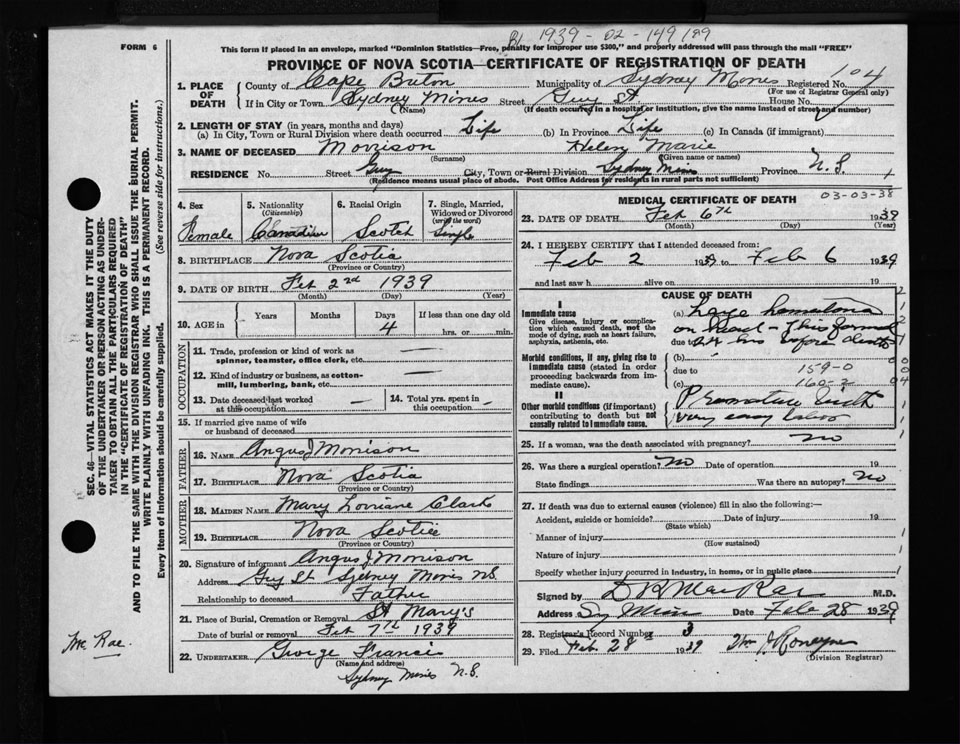 1939 - 02 - 149189
FORM 6
This form if placed in an envelope, marked "Dominion Statistics—Free, penalty for improper use $300," and properly addressed will pass through the mail "FREE"
PROVINCE OF NOVA SCOTIA—CERTIFICATE OF REGISTRATION OF DEATH
1. PLACE OF DEATH
County of Cape Breton Municipality of Sydney Mines Registered No. 104
(For use of Registrar General only)
If in City or Town Sydney Mines Street Guy St. House No.
(Name) (If death occurred in a hospital or institution, give the name instead of street and number)
2. LENGTH OF STAY (in years, months and days)
(a) In City, Town or Rural Division where death occurred Life (b) In Province Life (c) In Canada (if immigrant)
3. NAME OF DECEASED Morrison Helen Marie
(Surname) (Given name or names)
RESIDENCE No. Street Guy City, Town or Rural Division Sydney Mines Province N.S.
(Residence means usual place of abode. Post Office Address for residents in rural parts not sufficient)
4. Sex Female
5. Nationality (Citizenship) Canadian
6. Racial Origin Scotch
7. Single, Married, Widowed or Divorced (write the word) Single
8. BIRTHPLACE Nova Scotia
(Province or Country)
9. DATE OF BIRTH Feb 2nd 1939
(Month) (Day) (Year)
10. AGE in Years Months Days If less than one day old
4 hrs. or min.
OCCUPATION
11. Trade, profession or kind of work as spinner, teamster, office clerk, etc. —
12. Kind of industry or business, as cotton-mill, lumbering, bank, etc. —
13. Date deceased last worked at this occupation
14. Total yrs. spent in this occupation —
15. If married give name of wife or husband of deceased
FATHER
16. NAME Angus J Morrison
17. BIRTHPLACE Nova Scotia
(Province or Country)
MOTHER
18. MAIDEN NAME Mary Lorriane Clark
19. BIRTHPLACE Nova Scotia
(Province or Country)
20. Signature of informant Angus J Morrison
Address Guy St Sydney Mines NS.
Relationship to deceased Father
21. Place of Burial, Cremation or Removal St Mary's
Date of burial or removal Feb 7th 1939
22. UNDERTAKER George Francis
(Name and address)
Sydney Mines N.S.
MEDICAL CERTIFICATE OF DEATH
03-03-38
23. DATE OF DEATH Feb 6th 1939
(Month) (Day) (Year)
24. I HEREBY CERTIFY that I attended deceased from:
Feb 2 1939 to Feb 6 1939
and last saw h alive on 19
CAUSE OF DEATH
I
Immediate cause
Give disease, injury or complication which caused death, not the mode of dying, such as heart failure, asphyxia, asthenia, etc.
(a) Large hematoma
on head - This formed
due to 24 hrs before death
Morbid conditions, if any, giving rise to immediate cause (stated in order proceeding backwards from immediate cause).
(b)
due to 159-0
(c) 160-2
II
Other morbid conditions (if important) contributing to death but not causally related to immediate cause.
Premature birth
very easy labor
25. If a woman, was the death associated with pregnancy? no
26. Was there a surgical operation? no Date of operation 19
State findings Was there an autopsy? no
27. If death was due to external causes (violence) fill in also the following:—
Accident, suicide or homicide? Date of injury 19
(State which)
Manner of injury
(How sustained)
Nature of injury
Specify whether injury occurred in industry, in home, or in public place
Signed by D R MacRae M.D.
Address Sy Mines Date Feb 28 1939
28. Registrar's Record Number 3
29. Filed Feb 28 1939
(Division Registrar)
SEC. 46—VITAL STATISTICS ACT MAKES IT THE DUTY
OF THE UNDERTAKER OR PERSON ACTING AS UNDER-
TAKER TO OBTAIN ALL THE PARTICULARS REQUIRED
IN THE "CERTIFICATE OF REGISTRATION OF DEATH"
AND TO FILE THE SAME WITH THE DIVISION REGISTRAR WHO SHALL ISSUE THE BURIAL PERMIT.
WRITE PLAINLY WITH UNFADING INK. THIS IS A PERMANENT RECORD.
Every item of Information should be carefully supplied. (See reverse side for instructions.)
Mc Rae.